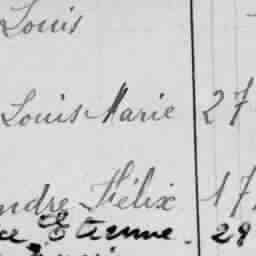 Louis
Louis Marie 27
ndre Félix 17
ce Etienne. 29